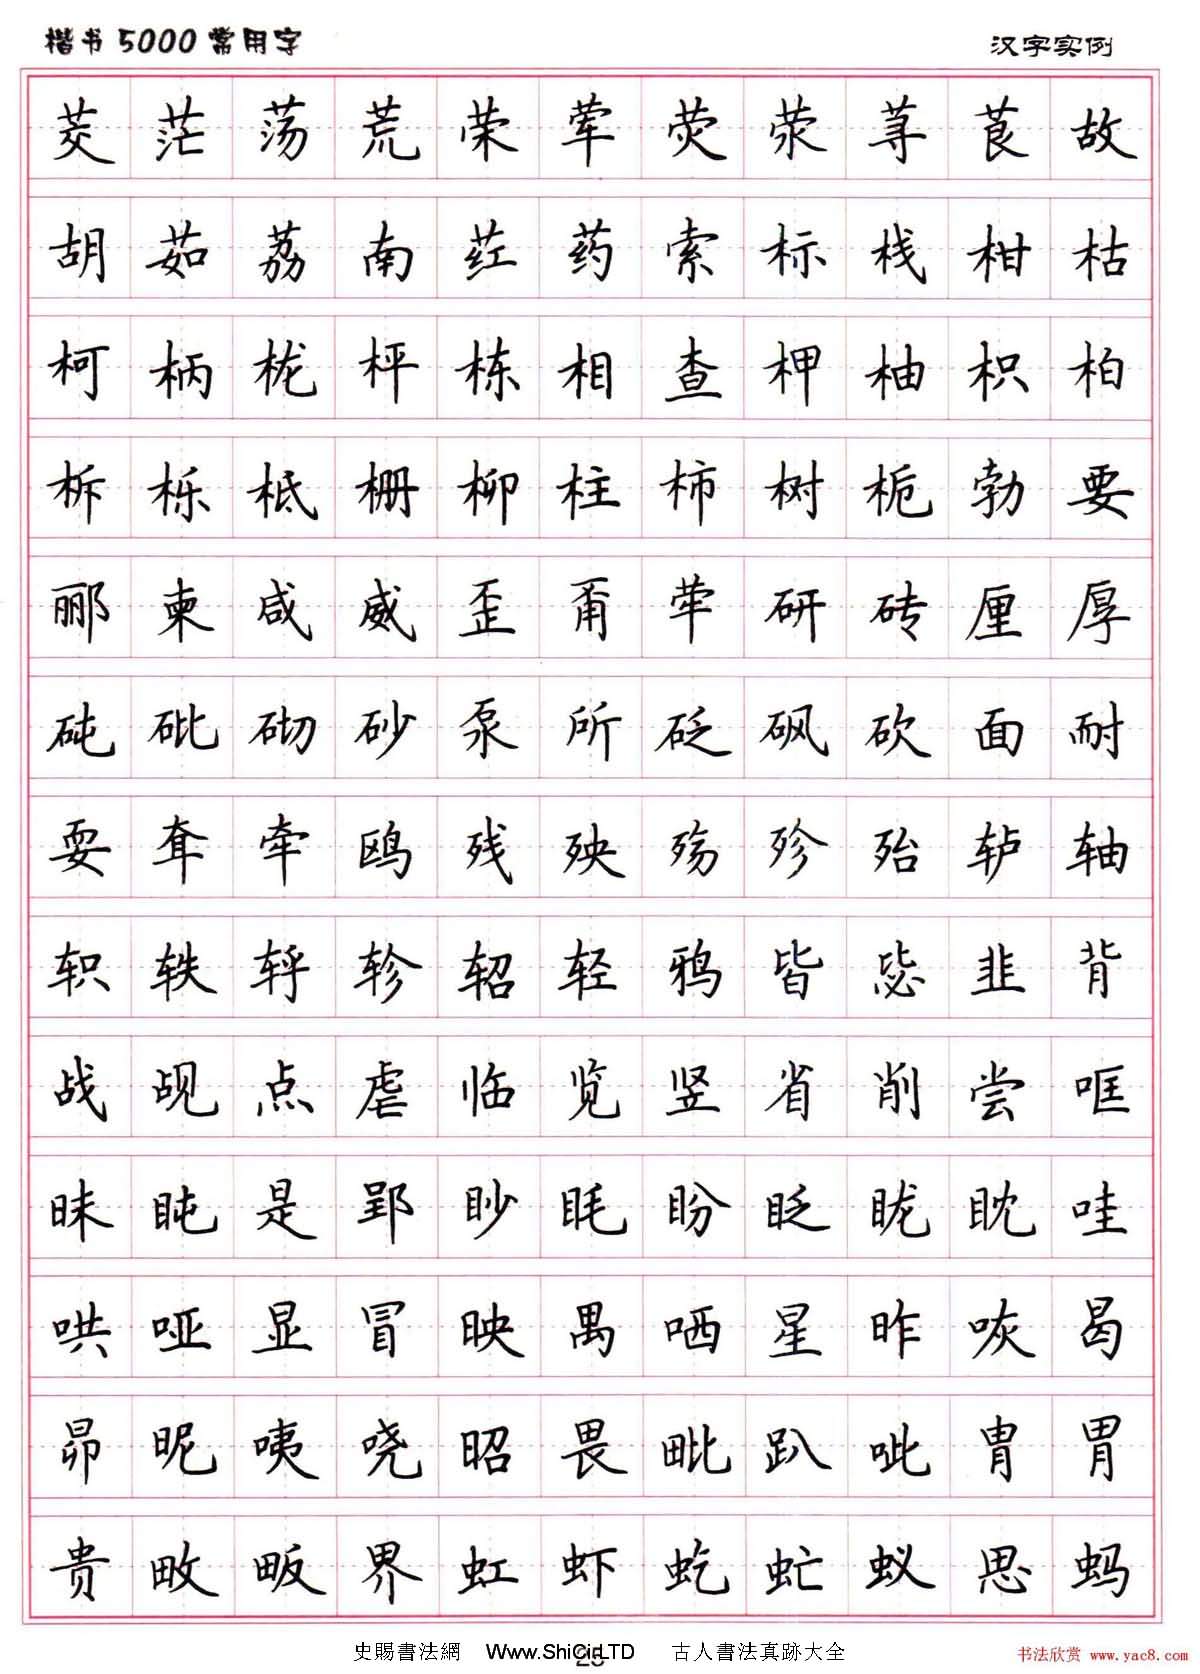 楷书5000常用字 汉字实例
茭 茫 荡 荒 荣 荤 荧 荥 荨 茛 故
胡 茹 荔 南 荭 药 索 标 栈 柑 枯
柯 柄 栊 枰 栋 相 查 柙 柚 枳 柏
柝 栎 柢 栅 柳 柱 柿 树 栀 勃 要
郦 柬 咸 威 歪 甭 荦 研 砖 厘 厚
砘 砒 砌 砂 泵 所 砭 砜 砍 面 耐
耍 耷 牵 鸥 残 殃 殇 殄 殆 轳 轴
轵 轶 轷 轸 轺 轻 鸦 皆 毖 韭 背
战 觇 点 虐 临 览 竖 省 削 尝 哐
昧 盹 是 郢 眇 眊 盼 眨 昽 眈 哇
哄 哑 显 冒 映 禺 哂 星 昨 咴 曷
昴 昵 咦 哓 昭 畏 毗 趴 呲 胄 胃
贵 畋 畈 界 虹 虾 虼 虻 蚁 思 蚂
史賜書法網 Www.ShiCiLTD 古人書法真跡大全
25
书法欣赏 www.yac8.com